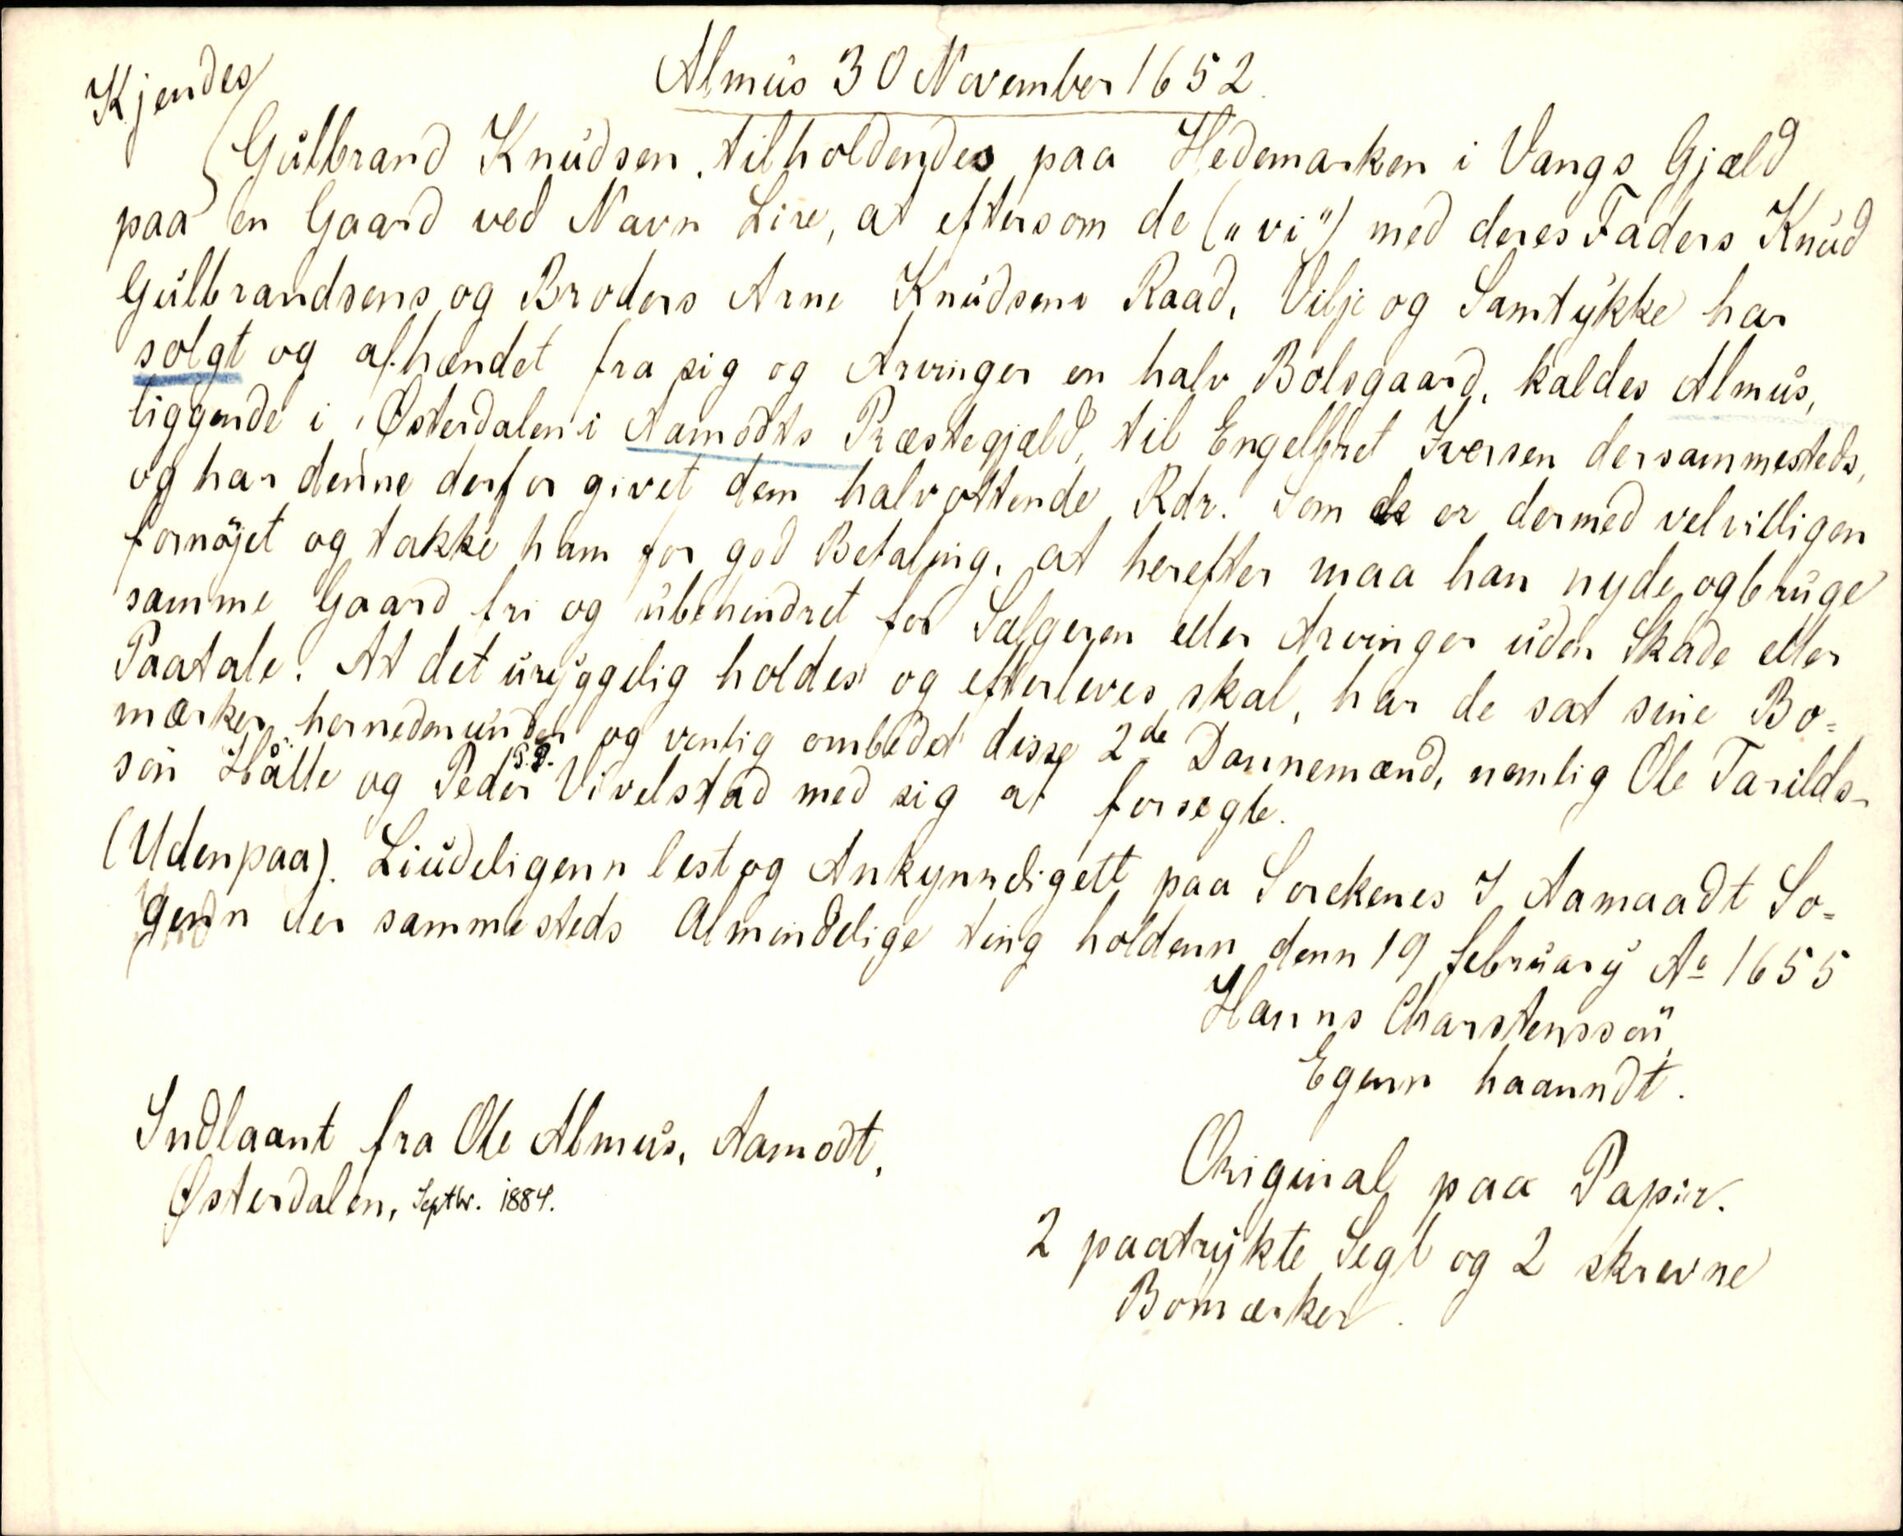 Almus 30 November 1652.
Kjendes
Gulbrand Knudsen, tilholdendes paa Hedemarken i Vangs Gjæld
paa en Gaard ved Navn Lire, at eftersom de („vi“) med deres Faders Knud
Gulbrandsens og Broders Arne Knudsens Raad, Vilje og Samtykke har
solgt og afhændet fra sig og Arvinger en halv Bolsgaard, kaldes Almus,
liggende i Østerdalen i Aamodts Præstegjæld, til Engelbret Iversen dersammesteds,
og har denne derfor givet dem halvottende Rdr. Som de er dermed velvilligen
fornøjet og takke ham for god Betaling, at herefter maa han nyde og bruge
samme Gaard fri og ubehindret for Sælgeren eller Arvinger uden Skade eller
Paatale. At det uryggelig holdes og efterleves skal, har de sat sine Bo=
mærker hernedenunder og venlig ombedet disse 2de Dannemænd, nemlig Ole Tarilds-
sön Hålle og Peder P.S. Vivelstad med sig at forsegle.
(Udenpaa). Liudeligenn lest og Ankynndigett paa Sorckenes I Aamaadt So=
genn der sammesteds Almindelige ting holdenn denn 19 february Ao 1655
Hanns Charstenssön
Egenn haanndt.
Indlaant fra Ole Almus, Aamodt,
Østerdalen, Septbr. 1884.
Original paa Papir.
2 paatrykte Segl og 2 skrevne
Bomærker.